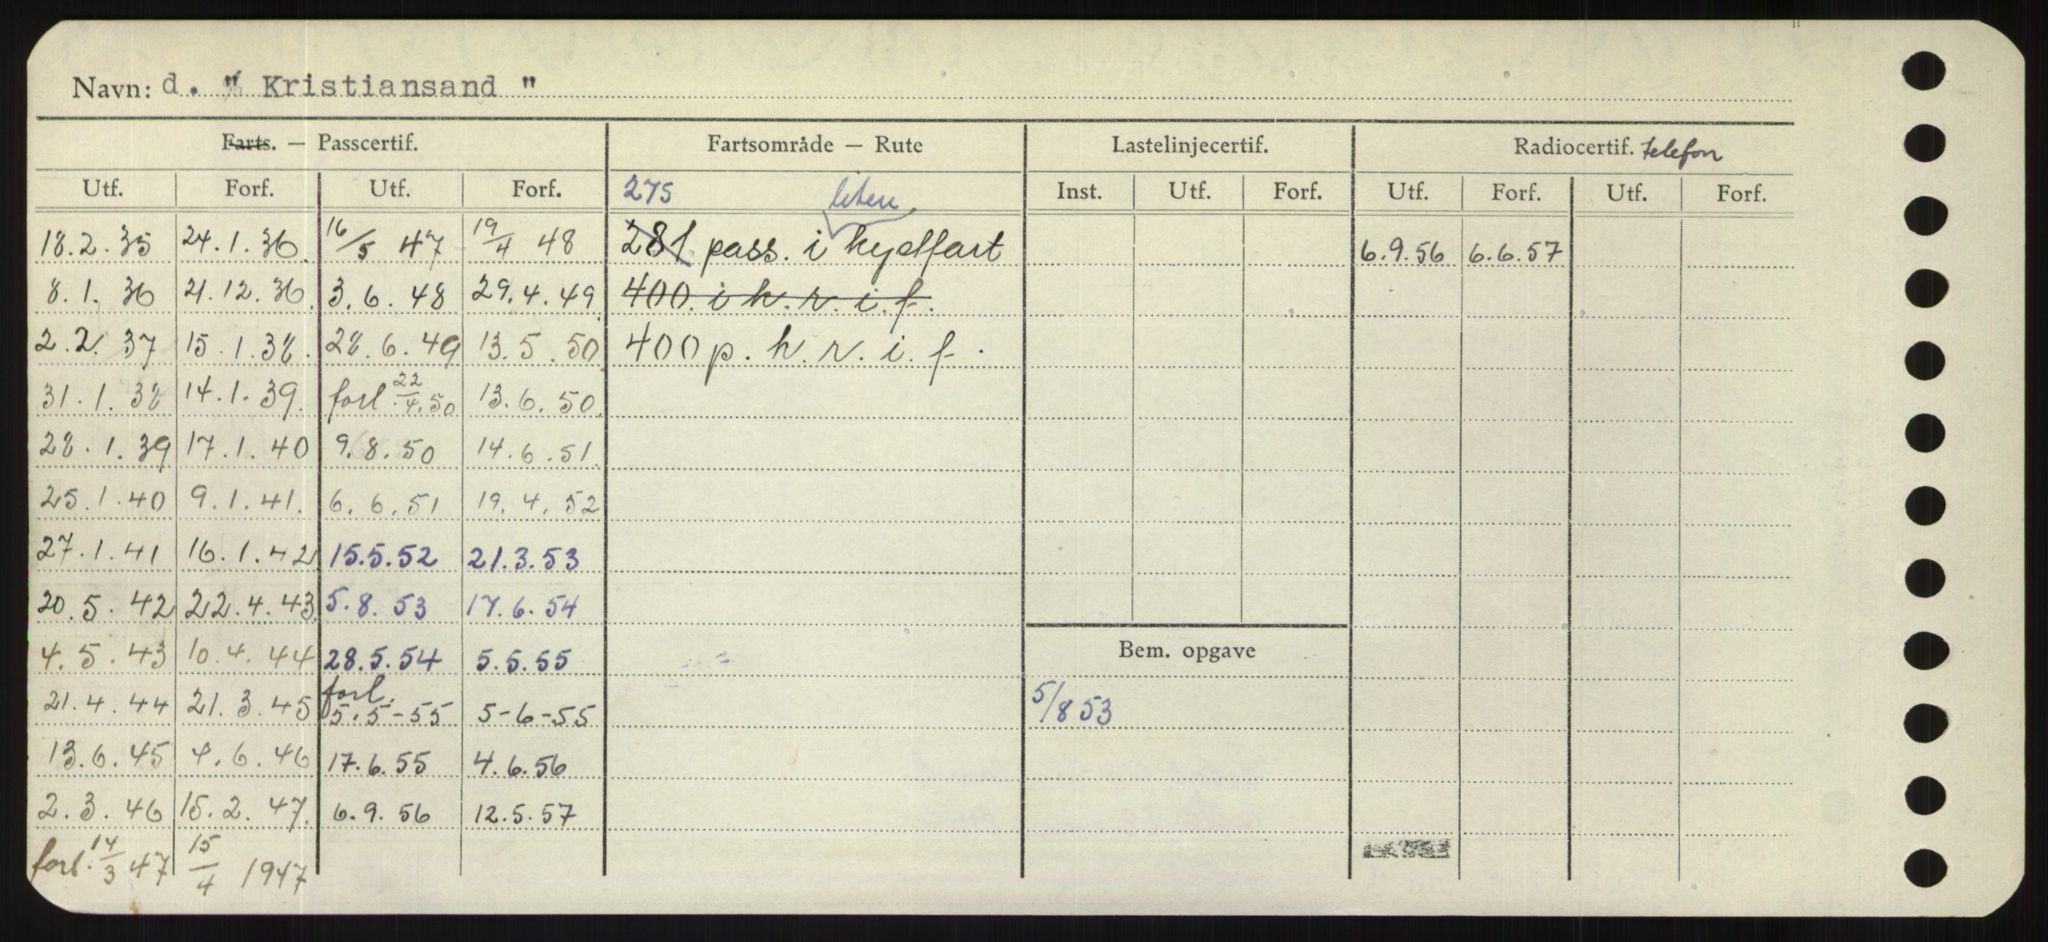 Navn: d. " Kristiansand "
Farts. — Passcertif. Fartsområde — Rute Lastelinjecertif. Radiocertif. telefon
Utf. Forf. Utf. Forf. 275 liten Inst. Utf. Forf. Utf. Forf. Utf. Forf.
18.2.35 24.1.36. 16/5 47 19/4 48 281 pass. i kystfart 6.9.56 6.6.57
8.1.36 21.12.36. 3.6.48 29.4.49 400. i h.r.i.f.
2.2.37 15.1.38. 28.6.49 13.5.50 400 p. h.r.i.f.
31.1.38 14.1.39. forl. 22/4.50 13.6.50.
28.1.39 17.1.40 9.8.50 14.6.51.
25.1.40 9.1.41. 6.6.51 19.4.52
27.1.41 16.1.42 15.5.52 21.3.53
20.5.42 22.4.43 5.8.53 17.6.54
4.5.43 10.4.44 28.5.54 5.5.55 Bem. opgave
21.4.44 21.3.45 forl. 5.5-55 5-6-55 5/8 53
13.6.45 4.6.46 17.6.55 4.6.56
2.3.46 15.2.47. 6.9.56 12.5.57
forl. 14/3 47 15/4 1947